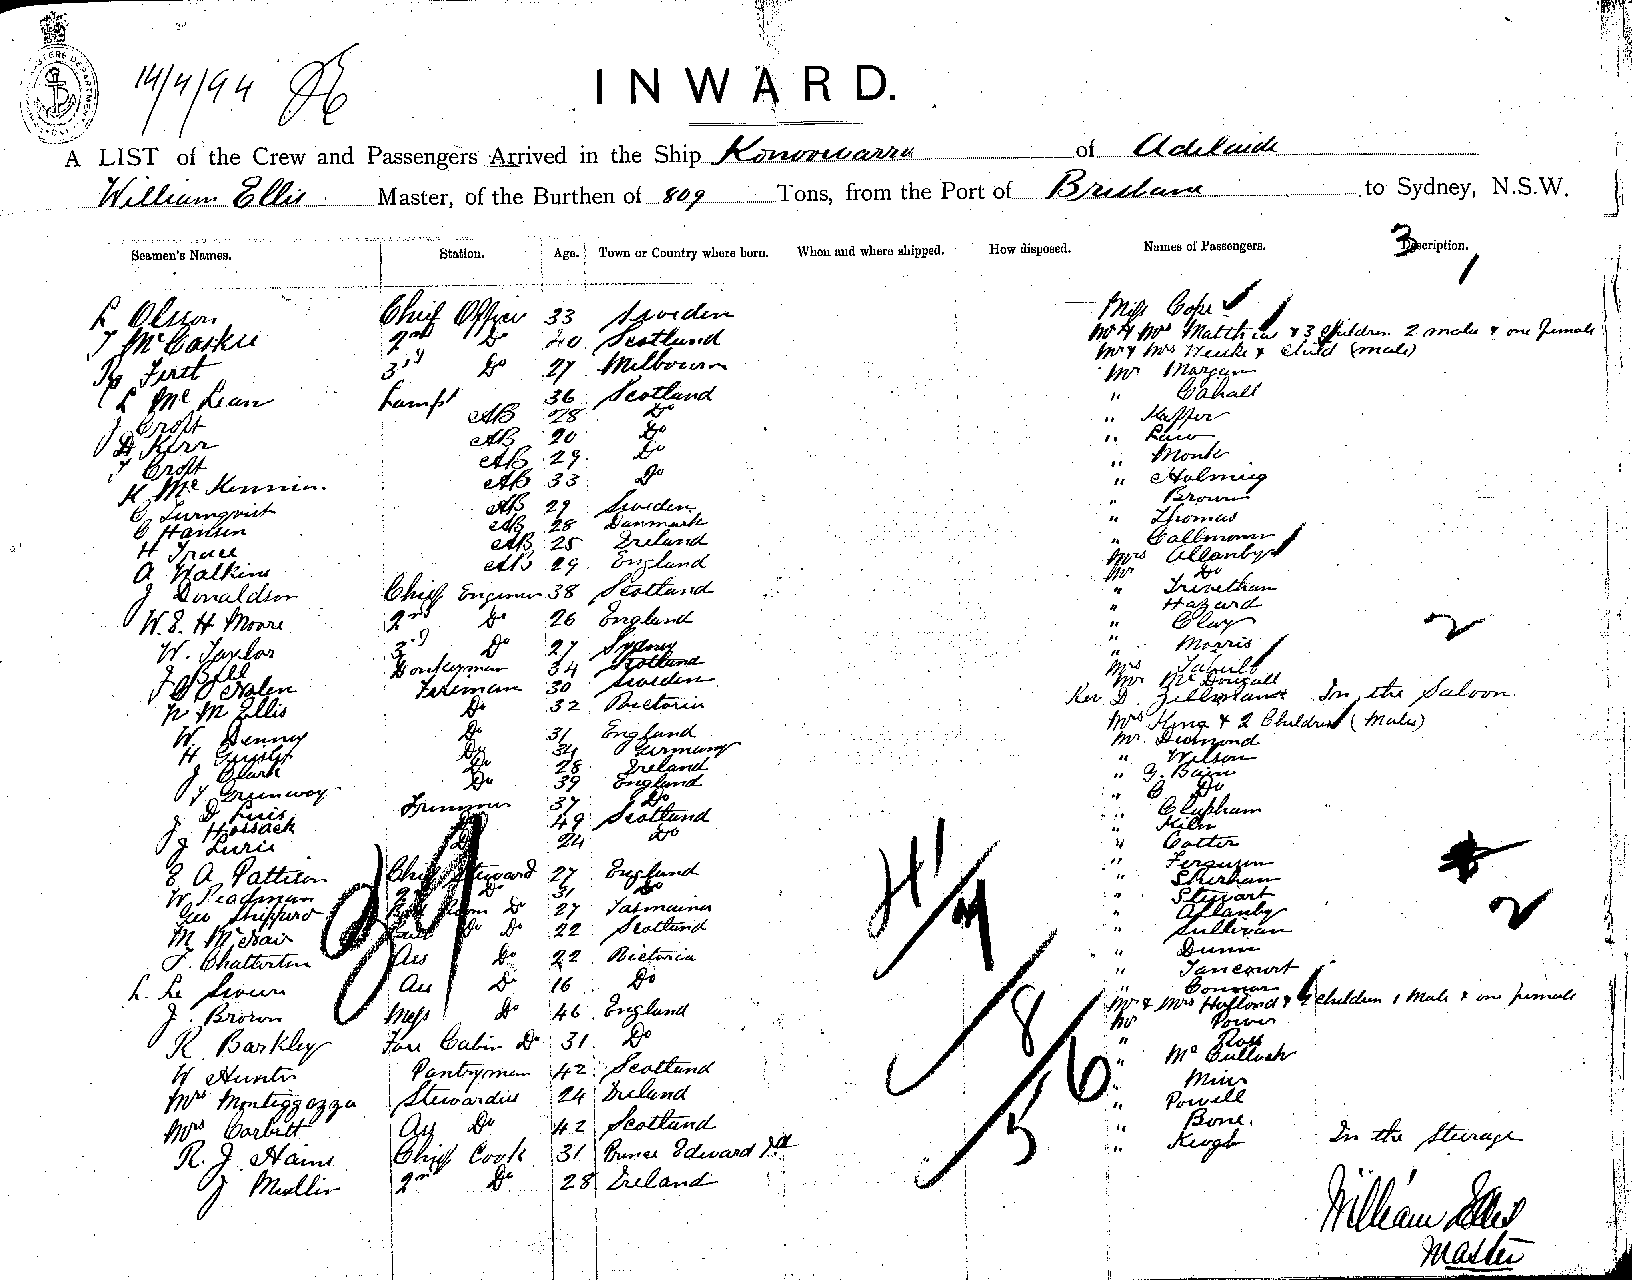 14/4/94
INWARD.
A LIST of the Crew and Passengers Arrived in the Ship Konoowarra of Adelaide
William Ellis Master, of the Burthen of 809 Tons, from the Port of Brisbane to Sydney, N.S.W.
Seamen's Names. Station. Age. Town or Country where born. When and where shipped. How disposed. Names of Passengers. 3 Description.
L Olsson Chief Officer 33 Sweden Miss Cope
T McCaskie 2nd Do 40 Scotland Mr & Mrs Matthew & 3 Children 2 male & one female
First 3rd Do 27 Melbourn Mr & Mrs & Child (male)
L McLean Lamps 36 Scotland Mr Morgan
J Croft AB 28 Do " Cahall
D Kerr AB 20 Do "
T Croft AB 29 Do " Law
K McKinnon AB 33 Do " Monk
C Turnqvist AB 29 Sweden "
C Hansen AB 28 Danmark " Brown
H Trace AB 25 Ireland " Thomas
A Walkins AB 29 England "
J Donaldson Chief Engineer 38 Scotland Mrs Allanby
W.E. H Moore 2nd Do 26 England Mr Do
W. Taylor 3rd Do 27 Sydney " Trivetham
J Bell Donkeyman 34 Scotland " Hazard
Fireman 30 Sweden " Clay
N M Ellis Do 32 Victoria " Morris
W Denny Do 31 England Mrs
H Do 34 Germany Mr McDougall
J Clark Do 28 Ireland Rev D. In the Saloon
T Greenway Do 39 England Mrs King & 2 Children (Males)
D Trimmer 37 Do Mr. Diamond
J Hossack 49 Scotland " Wilson
J Lurie 24 Do " G. Bain
E A Pattison Chief Steward 27 England " C Do
W Peadman 2nd Do 31 Do " Clapham
Geo Sheppard Do 27 Tasmania "
M McNair Do 22 Scotland " Cotter
F. Chatterton Ass Do 22 Victoria " Ferguson
L. Le Ass Do 16 Do "
J. Brown Mess Do 46 England " Stewart
R Barkley Fore Cabin Do 31 Do " Allanby
W Hunter Pantryman 42 Scotland " Sullivan
Mrs Stewardess 24 Ireland " Dunn
Mrs Corbett Ass Do 42 Scotland "
R. J. Chief Cook 31 Prince Edward Id " Connor
J Mullin 2nd Do 28 Ireland Mr & Mrs Holland & 2 Children 1 Male & one female
Mr Power
" Ross
" McCulloch
"
" Powell
" Bone.
" Keogh In the Steerage
William Ellis
Master